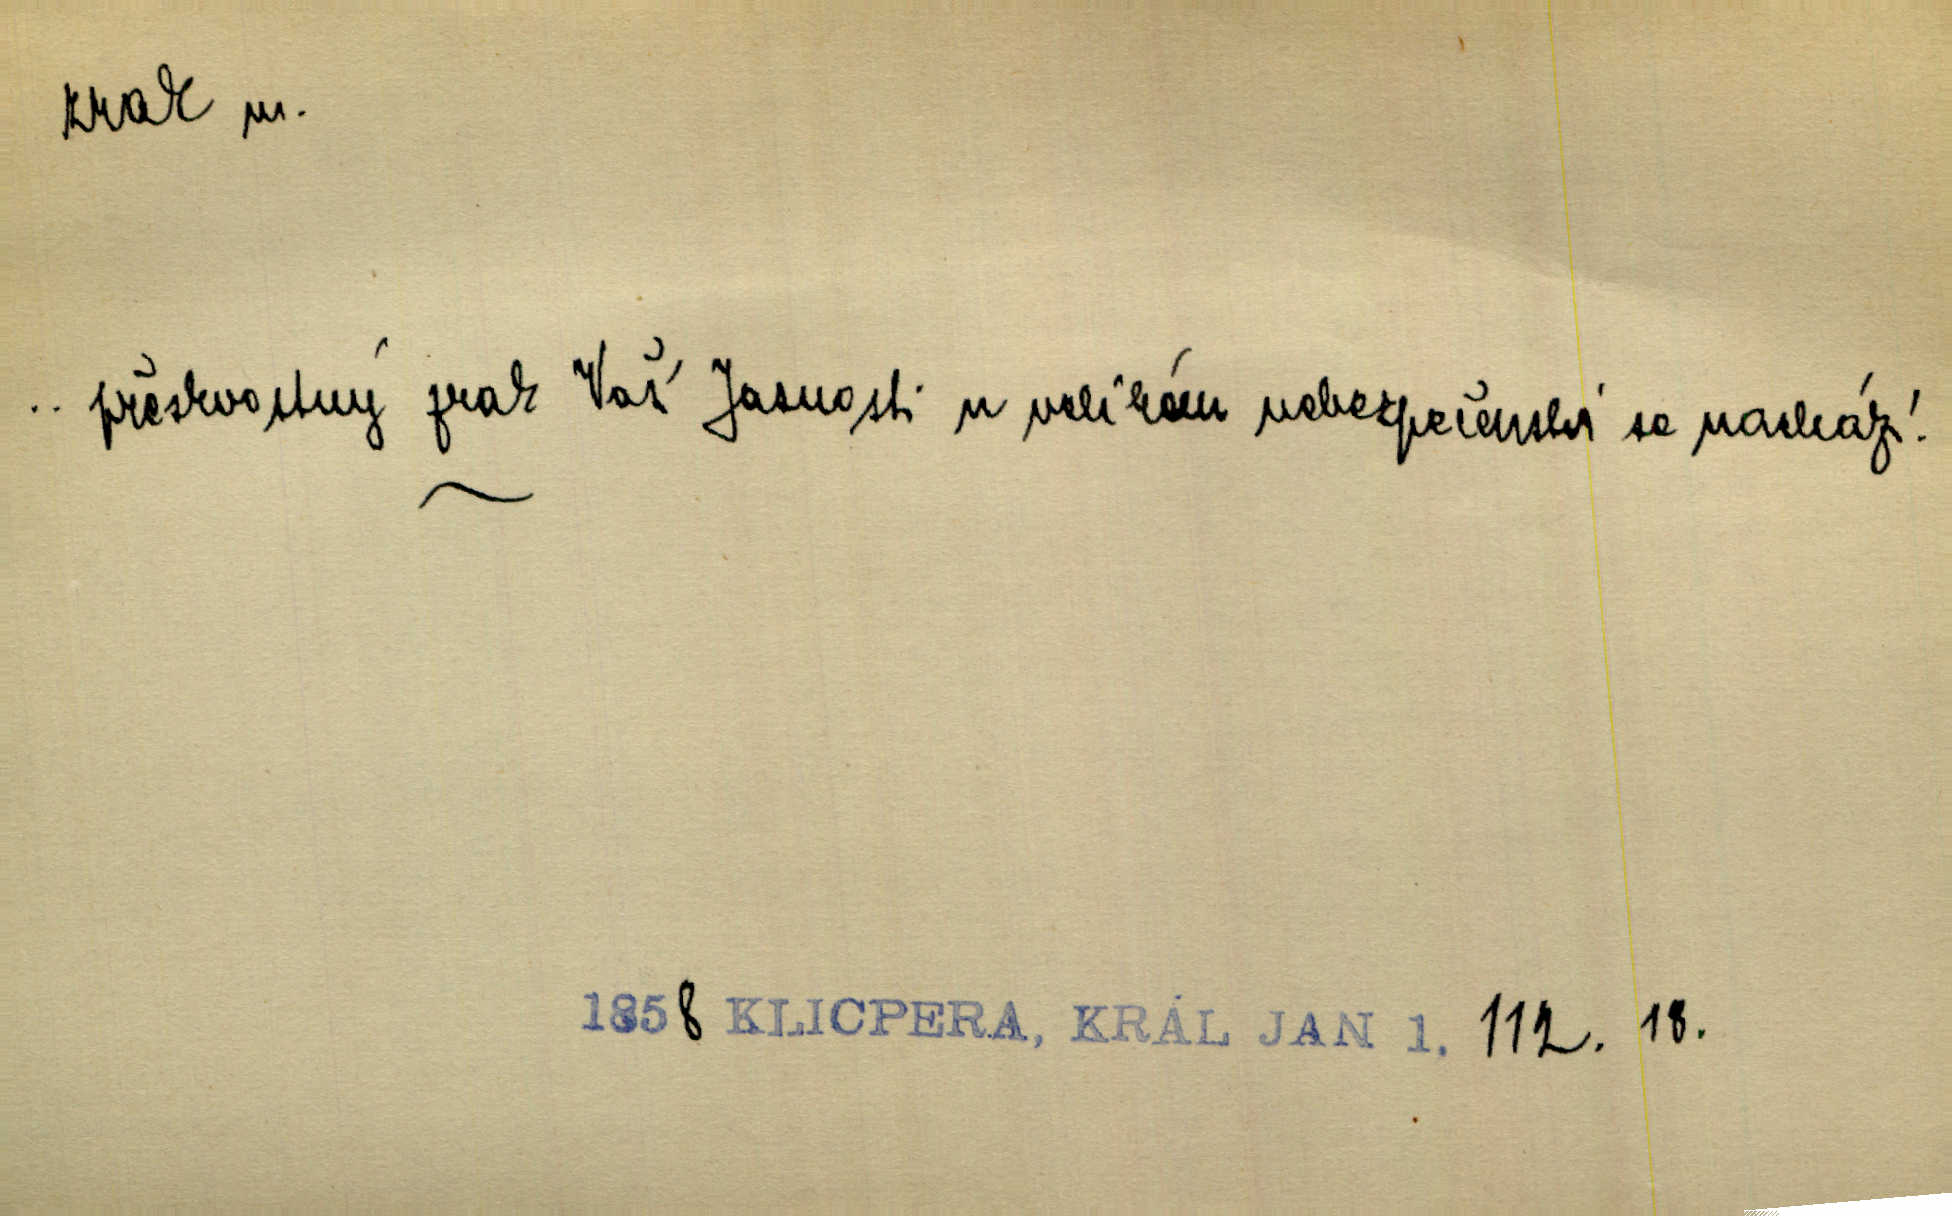 zrak m.
.. přeskvostný zrak Vaší Jasnosti u velikém nebezpečenství se nachází.
1858 KLICPERA, KRÁL JAN 1. 112. 18.